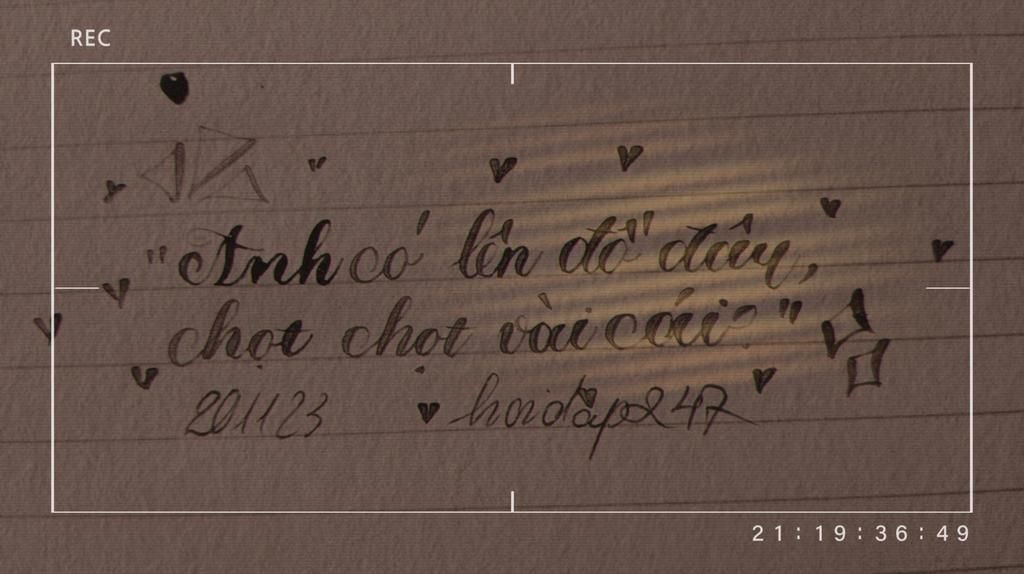 REC
"Anh có lên đố đây,
chọt chọt vài cái?"
201123 hoidap247
21:19:36:49